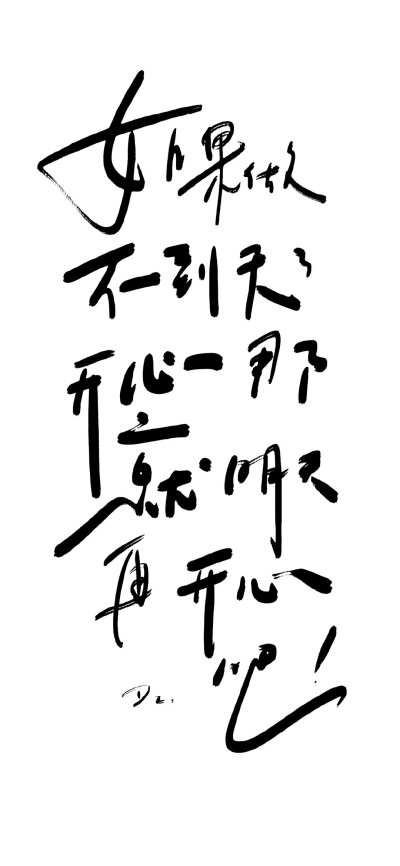 如果做
不到天々
开心那
就明天
再开心
吧!
Dz.